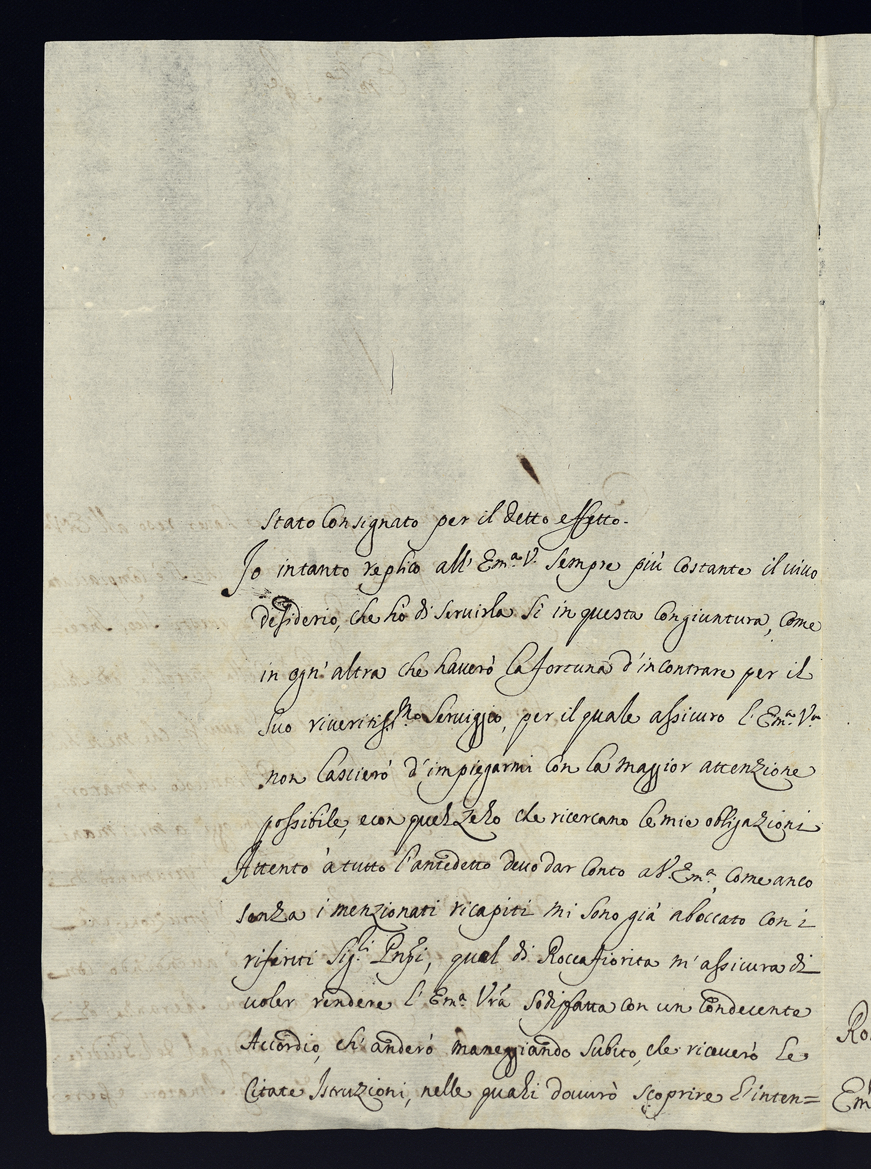 Stato Consignato per il detto effetto.
Io intanto replico all' Em.ª V.ª Sempre più Costante il vivo
desiderio, che hò di Servirla Si in questa Congiuntura, Come
in ogn' altra che haverò la fortuna d'incontrare per il
Suo riveritiss.mo Seruiggio, per il quale assicuro l'Em.ª V.ra
non lascierò d'impiegarmi con la maggior attenzione
possibile, e con quel zelo che ricercano le mie obligazioni
Attento à tutto l'antedetto devo dar Conto a V. Em.ª, Come anco
senza i menzionati ricapiti mi Sono già aboccato con i
riferiti Sig.li Pnpi, qual di Roccafiorita m'assicura di
voler rendere l'Em.ª Vrã Sodisfatta con un Condecente
Accordio, ch'anderò maneggiando Subito, che riceverò le
Citate Istruzzioni, nelle quali dovurò scoprire l'inten=
Ro
Em